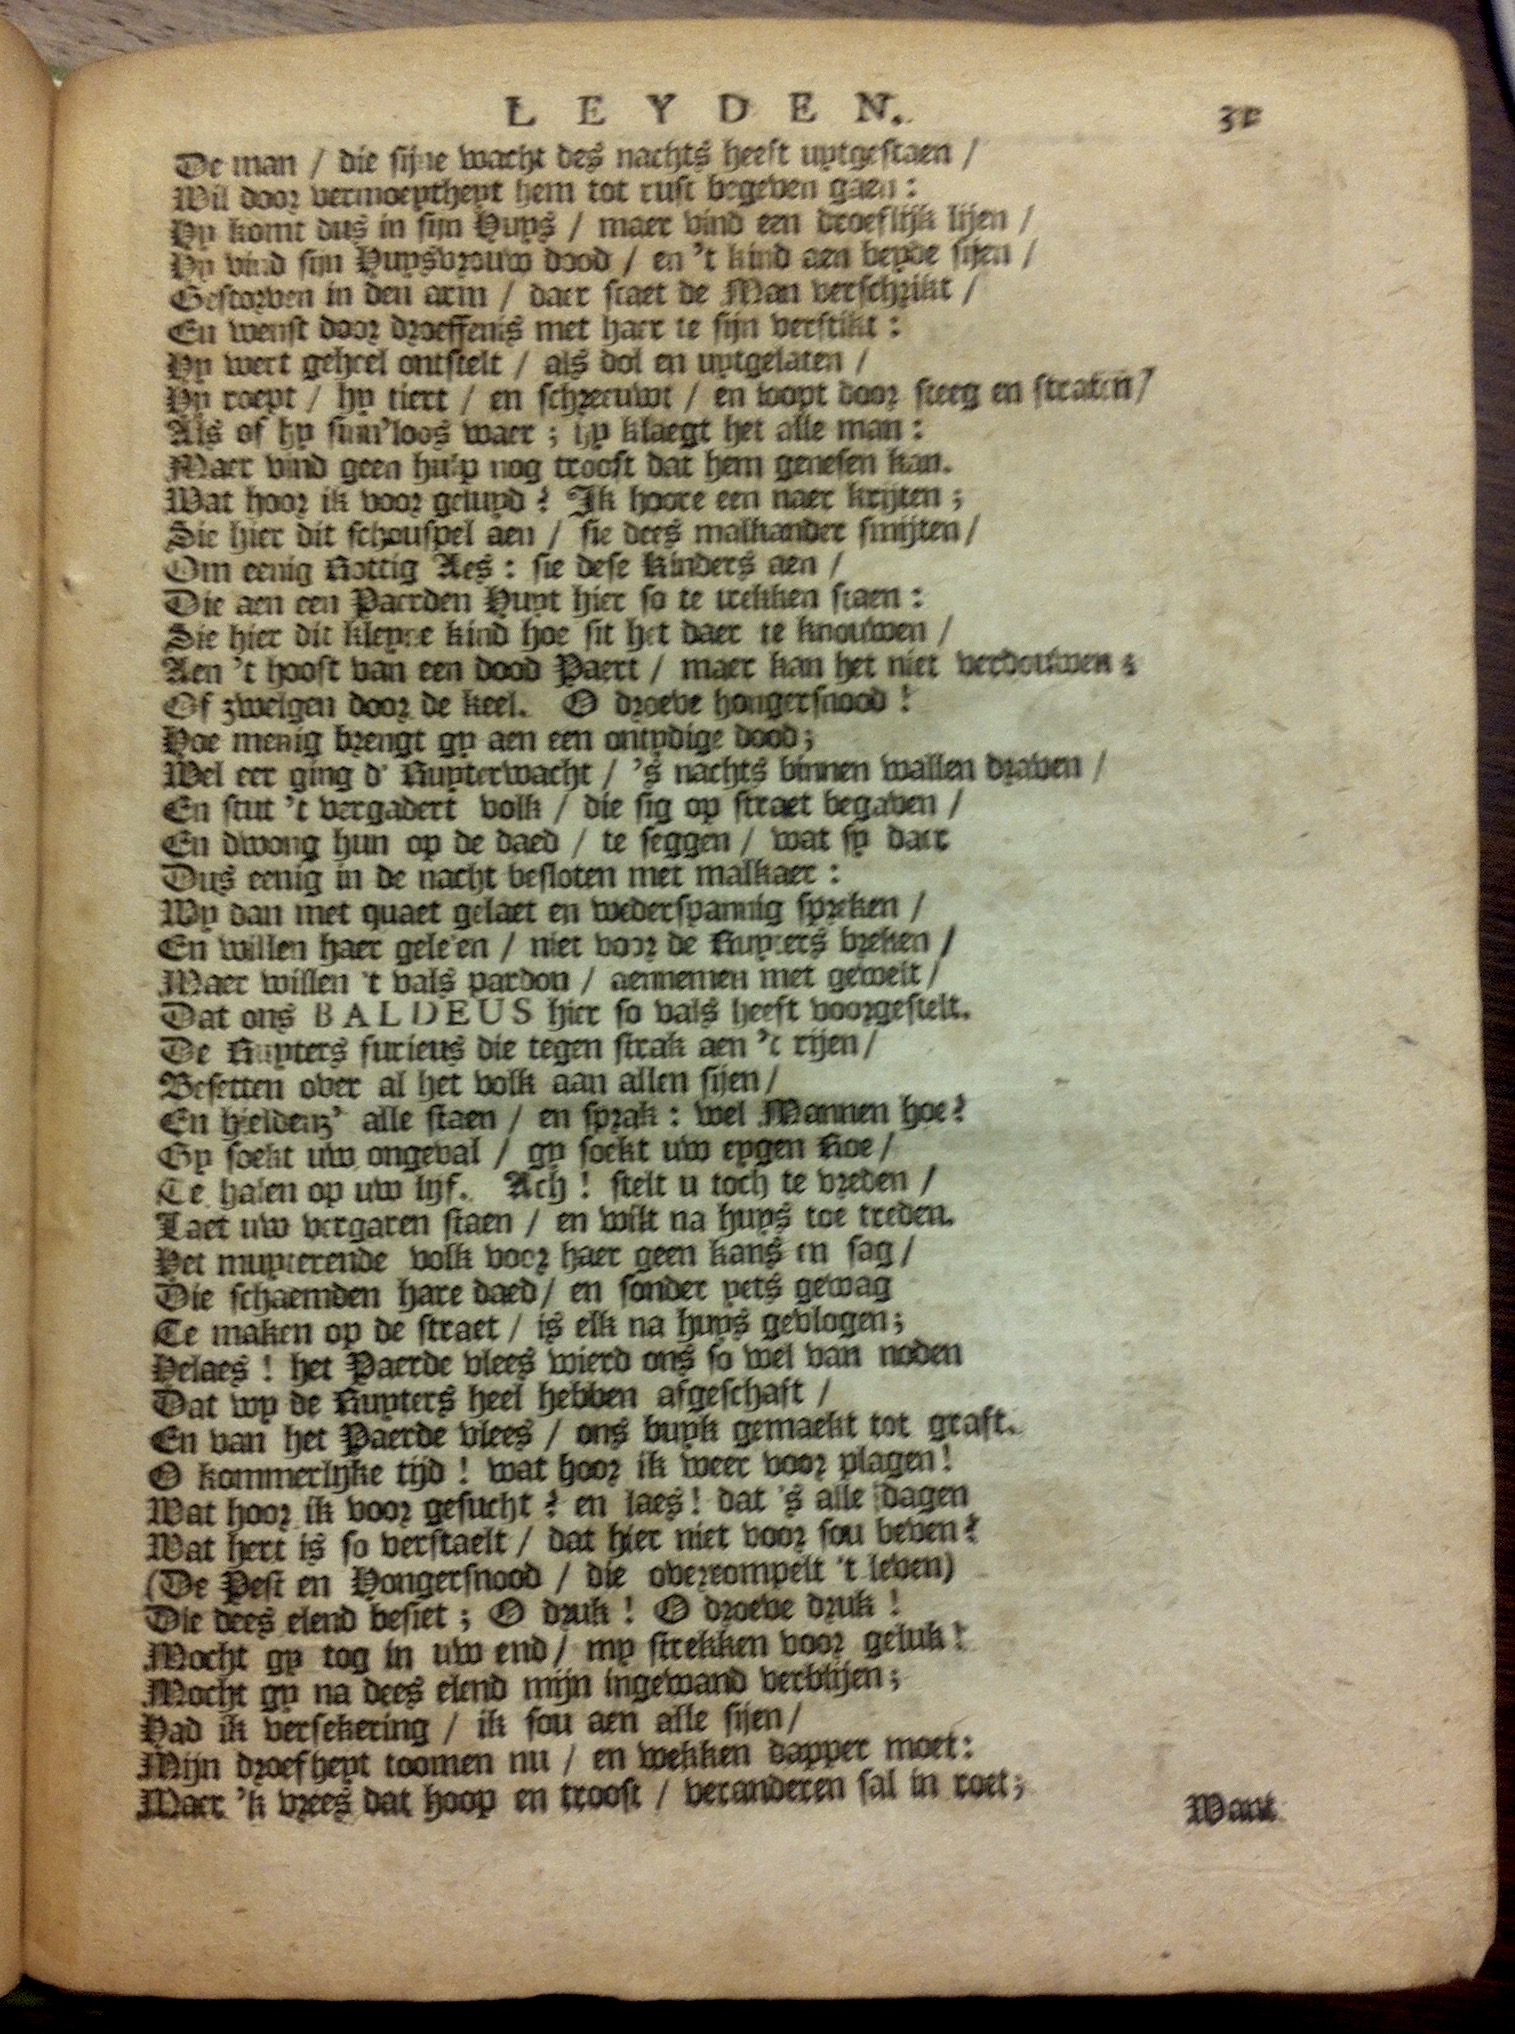 LEYDEN. 31
De man / die sijne wacht des nachts heeft uytgestaen /
Wil door vermoeytheyt hem tot rust begeven gaen :
Hy komt dus in sijn Huys / maer vind een droeflijk lijen /
Hy vind sijn Huysvrouw dood / en 't kind aen beyde sijen /
Gestorven in den arm / daer staet de Man verschrikt /
En wenst door droeffenis met haer te sijn verstikt :
Hy wert geheel ontstelt / als dol en uytgelaten /
Hy roept / hy tiert / en schreeuwt / en loopt door steeg en straten /
Als of hy sinn'loos waer ; hy klaegt het alle man :
Maer vind geen hulp nog troost dat hem genesen kan.
Wat hoor ik voor geluyd ? Ik hoore een naer krijten ;
Sie hier dit schouspel aen / sie dees malkander smijten /
Om eenig Rottig Aes : sie dese Kinders aen /
Die aen een Paerden Huyt hier so te trekken staen :
Sie hier dit kleyne kind hoe sit het daer te knouwen /
Aen 't hooft van een dood Paert / maer kan het niet verdouwen ;
Of zwelgen door de keel. O droeve hongersnood !
Hoe menig brengt gy aen een ontydige dood ;
Wel eer ging d' Ruyterwacht / 's nachts binnen wallen draven /
En stut 't vergadert volk / die sig op straet begaven /
En dwong hun op de daed / te seggen / wat sy daer
Dus eenig in de nacht besloten met malkaer :
Wy dan met quaet gelaet en wederspannig spreken /
En willen haer gele'en / niet voor de Ruyters breken /
Maer willen 't vals pardon / aennemen met gewelt /
Dat ons BALDEUS hier so vals heeft voorgestelt.
De Ruyters furieus die tegen strak aen 't rijen /
Besetten over al het volk aan allen sijen /
En hieldenz' alle staen / en sprak : wel Mannen hoe ?
Gy soekt uw ongeval / gy soekt uw eygen Roe /
Te halen op uw lyf. Ach ! stelt u toch te vreden /
Laet uw vergaren staen / en wilt na huys toe treden.
Het muyterende volk voor haer geen kans en sag /
Die schaemden hare daed / en sonder yets gewag
Te maken op de straet / is elk na huys gevlogen ;
Helaes ! het Paerde vlees wierd ons so wel van noden
Dat wy de Ruyters heel hebben afgeschaft /
En van het Paerde vlees / ons buyk gemaekt tot graft.
O kommerlijke tijd ! wat hoor ik weer voor plagen !
Wat hoor ik voor gesucht ? en laes ! dat 's alle dagen
Wat hert is so verstaelt / dat hier niet voor sou beven ?
(De Pest en Hongersnood / die overrompelt 't leven)
Die dees elend besiet ; O druk ! O droeve druk !
Mocht gy tog in uw end / my strekken voor geluk !
Mocht gy na dees elend mijn ingewand verblijen ;
Had ik versekering / ik sou aen alle sijen /
Mijn droefheyt toomen nu / en wekken dapper moet :
Maer 'k vrees dat hoop en troost / veranderen sal in roet ;
Want